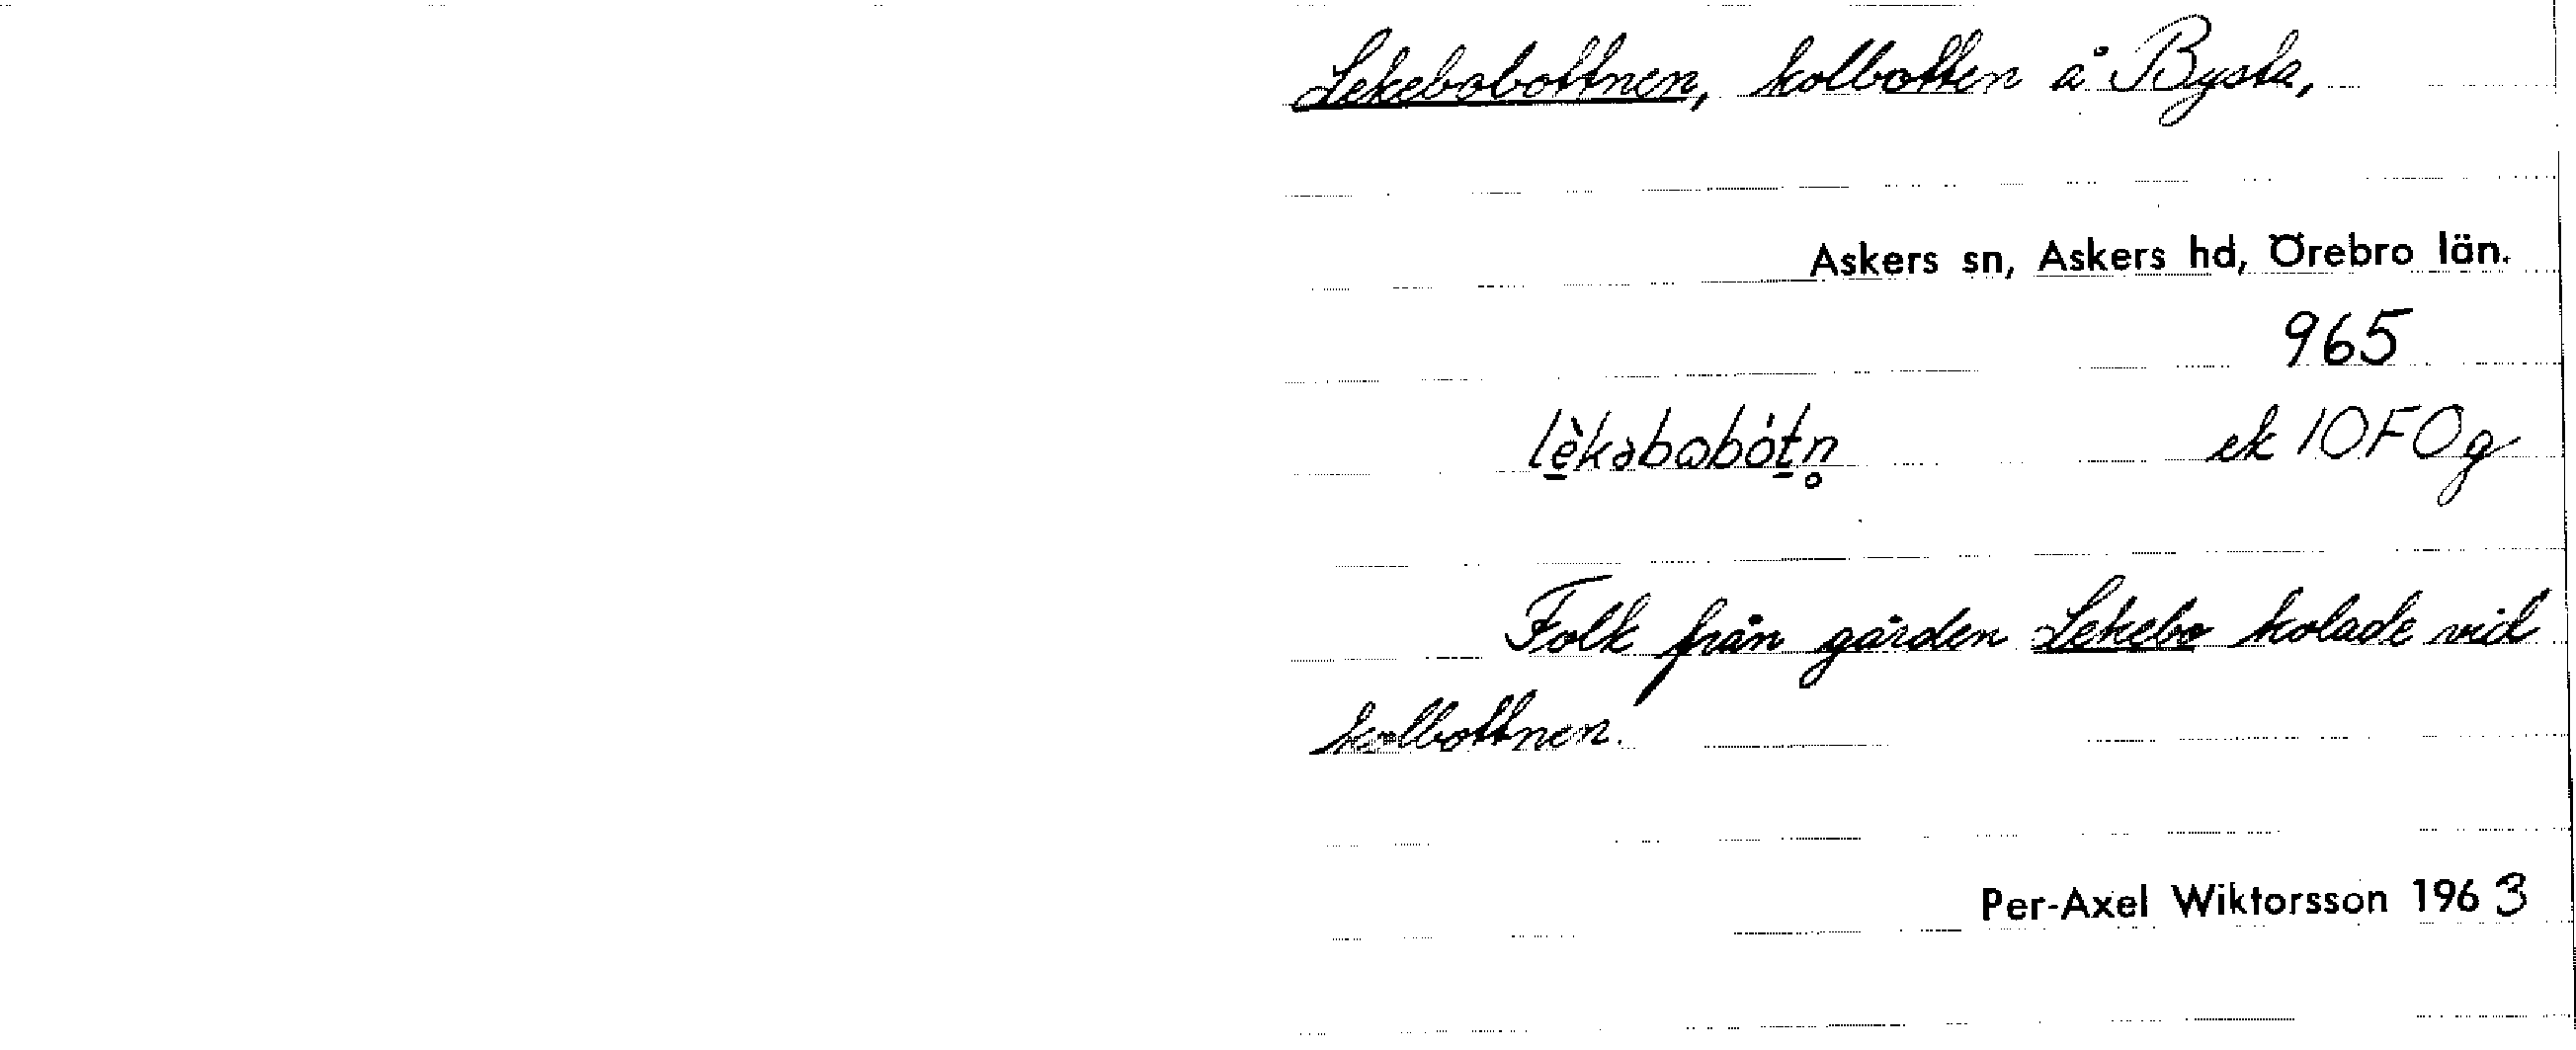 Lekebobottnen, kolbotten å Bysta,
Askers sn, Askers hd, Örebro län.
965
lèkəbobótn̥ ek 10F0g
Folk från gården Lekebo kolade vid
kolbottnen.
Per-Axel Wiktorsson 1963